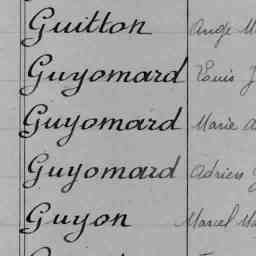 Guitton Ange M
Guyomard Louis J
Guyomard Marie A
Guyomard Adrien J
Guyon Marcel Ma